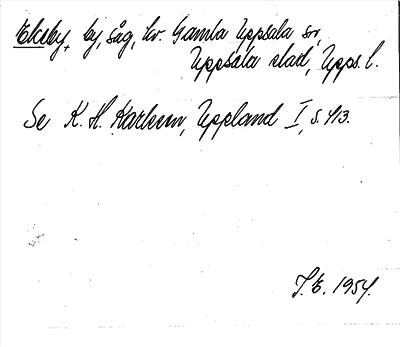 Ekeby, by, såg, kv. Gamla Uppsala sn,
Uppsala stad, Upps. l.
Se K. H. Karlsson, Uppland I, s. 413.
J. E. 1954.